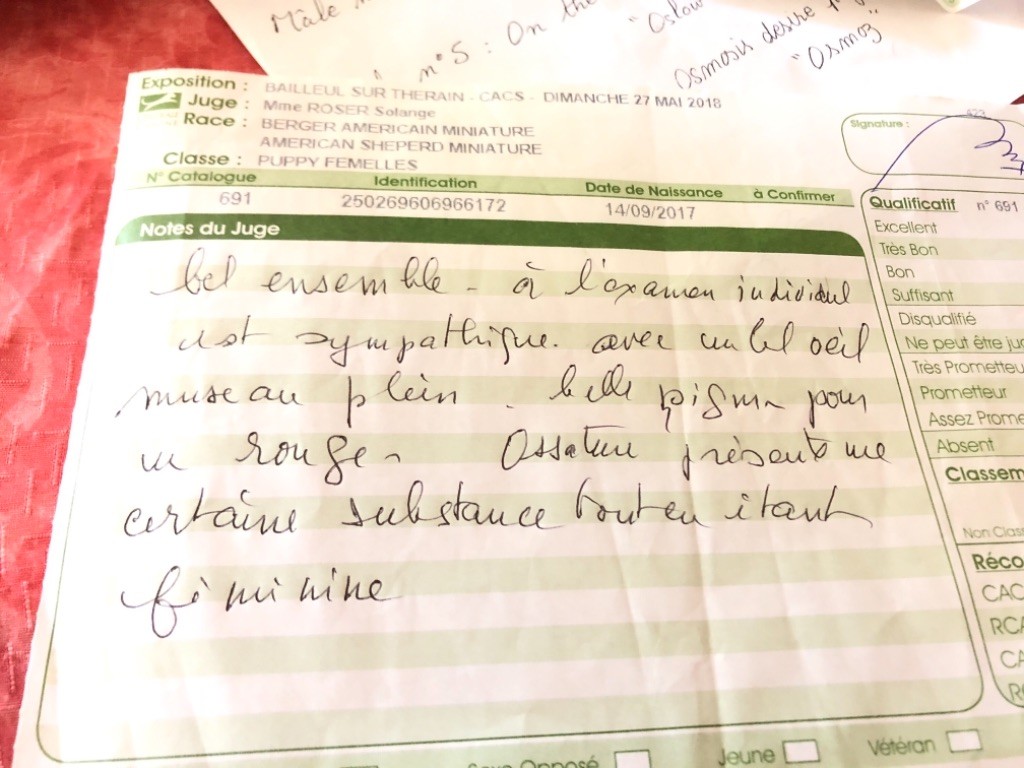 Mâle
n°5 : On the
"Oslow
Osmosis desire
"Osmoz"
Exposition : BAILLEUL SUR THERAIN - CACS - DIMANCHE 27 MAI 2018
Juge : Mme ROSER Solange
Race : BERGER AMERICAIN MINIATURE
AMERICAN SHEPERD MINIATURE
Classe : PUPPY FEMELLES
N° Catalogue Identification Date de Naissance à Confirmer
691 250269606966172 14/09/2017
Notes du Juge
bel ensemble - à l'examen individuel
est sympathique. avec un bel oeil
museau plein. belle pigm pour
un rouge. Ossature présente une
certaine substance tout en étant
féminine
Signature :
423
Qualificatif n° 691
Excellent
Très Bon
Bon
Suffisant
Disqualifié
Ne peut être ju
Très Prometteu
Prometteur
Assez Prome
Absent
Classem
Non Clas
Réco
CAC
RCA
CA
R
Sexe Opposé Jeune Vétéran